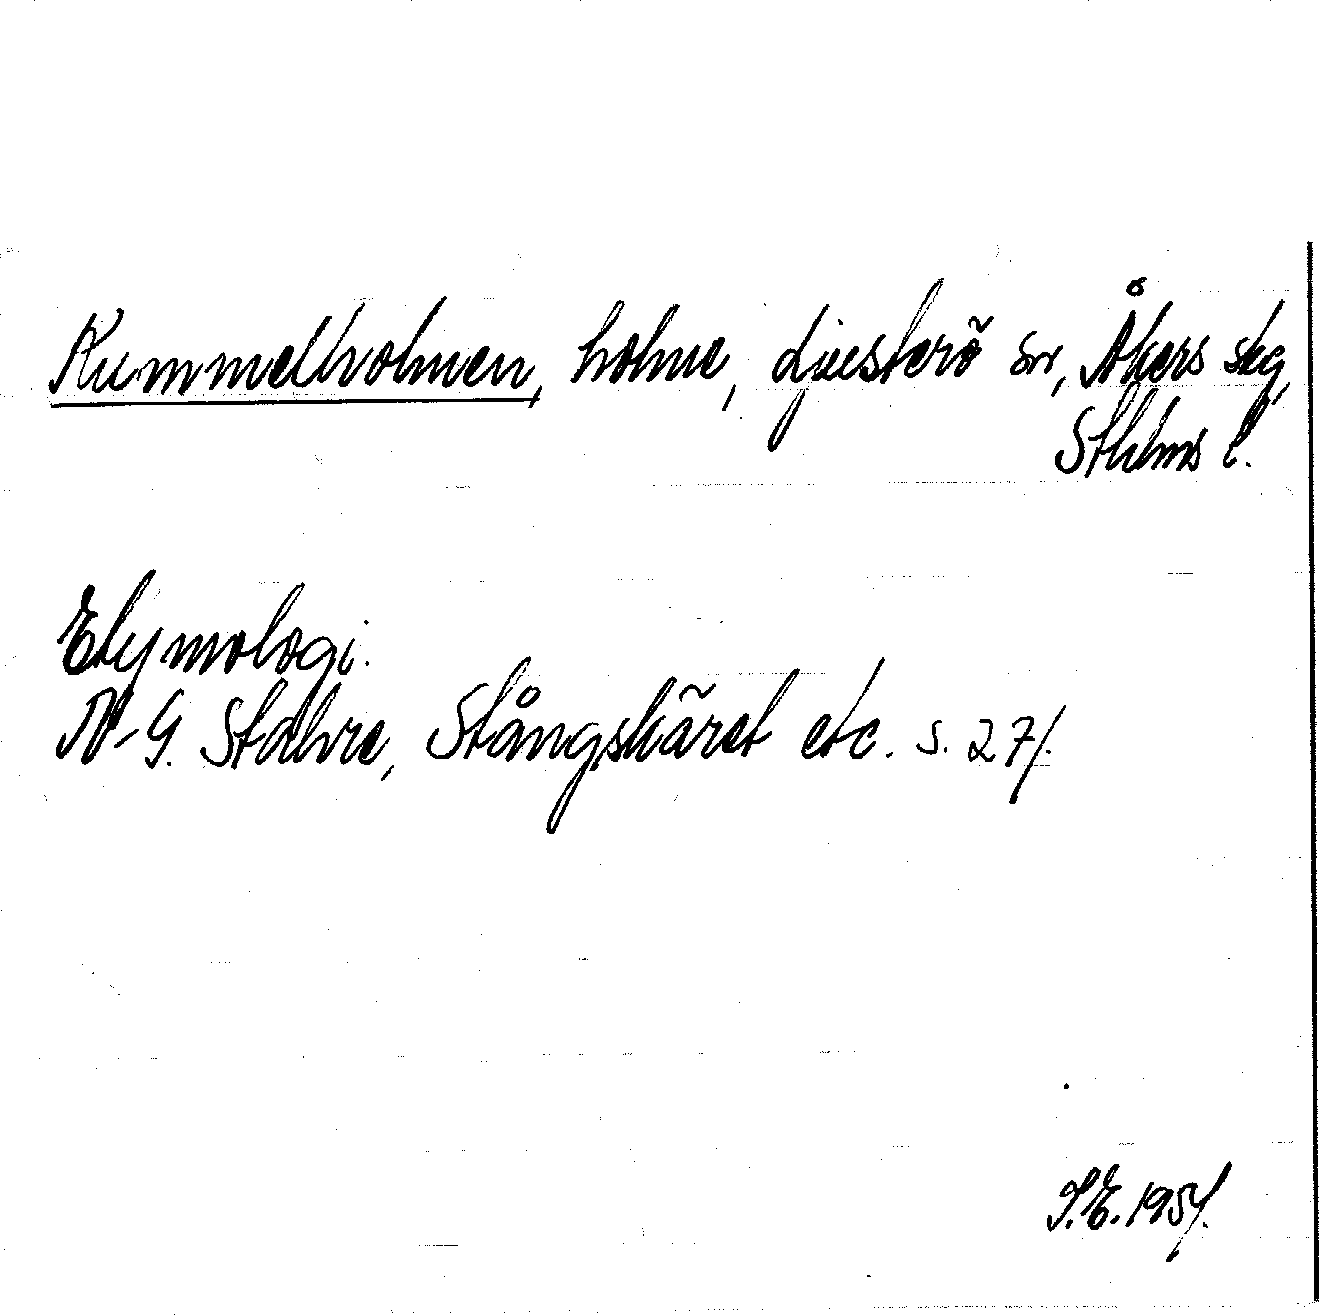 Kummelholmen, holme, Ljusterö sn, Åkers skg,
Sthlms l.
Etymologi.
N-G. Stahre, Stångskäret etc. s. 27.
S.E. 1957.